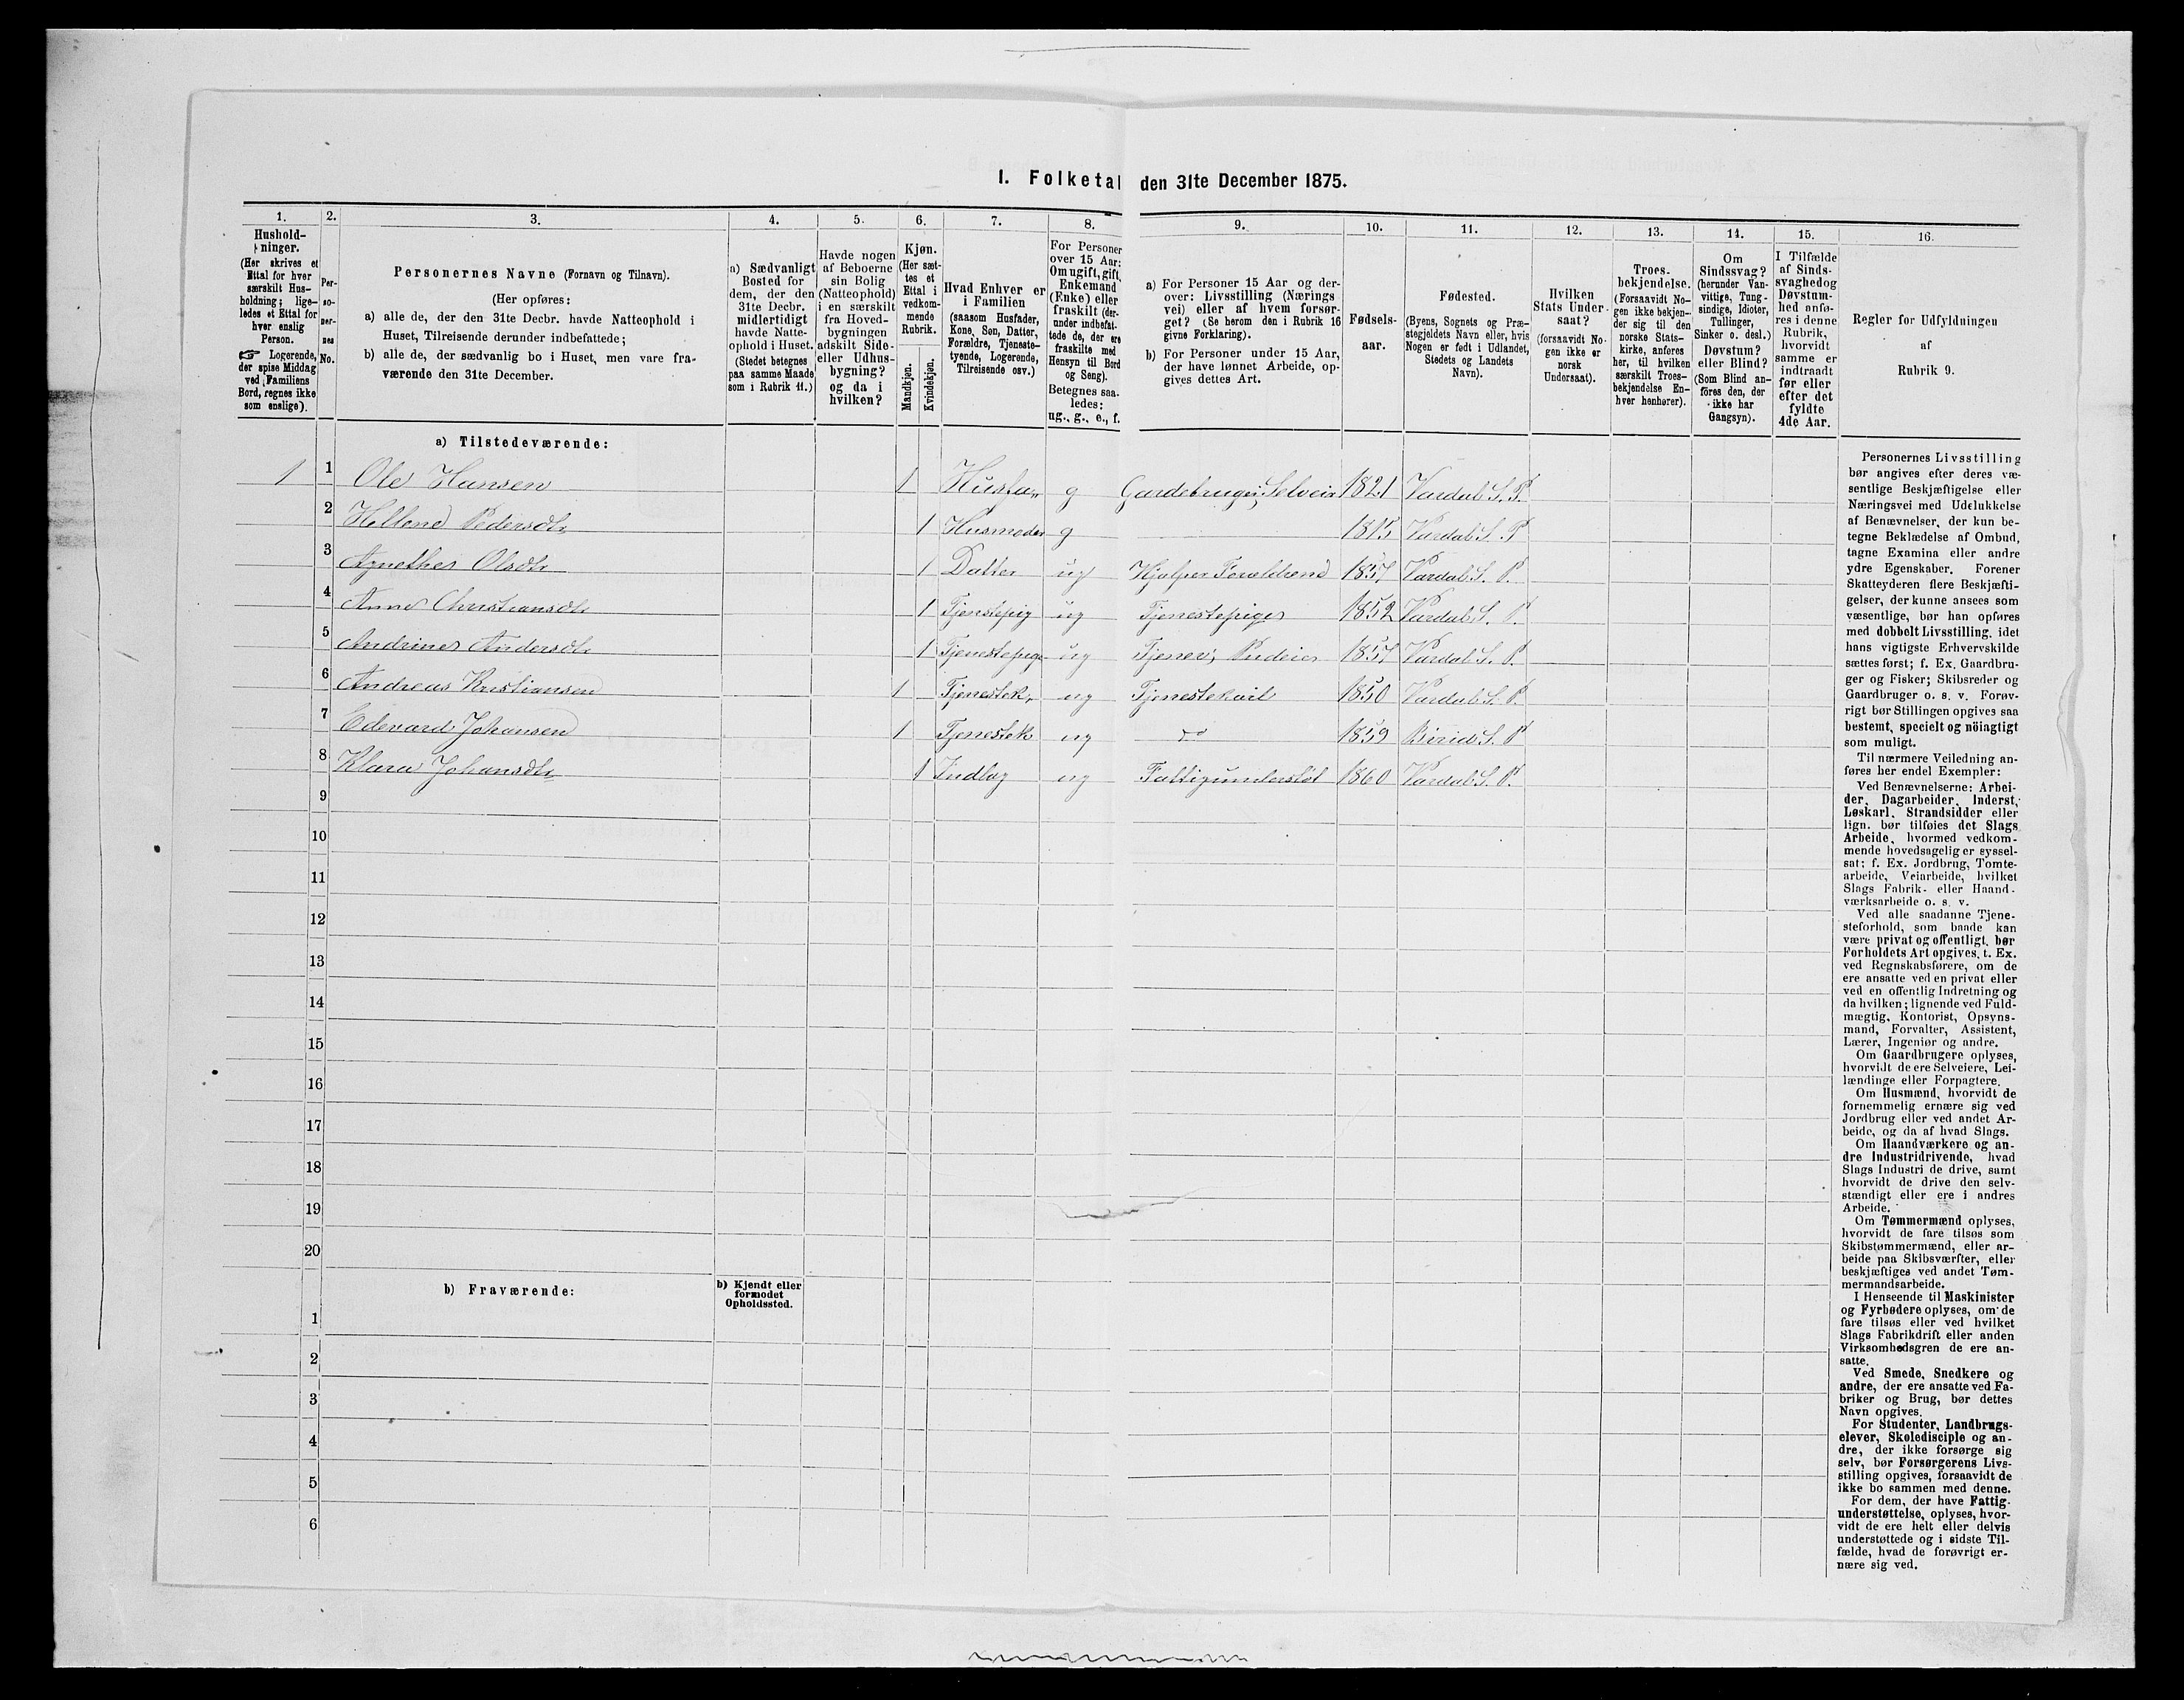 I. Folketal den 31te December 1875.
1. 2. 3. 4. 5. 6. 7. 8. 9. 10. 11. 12. 13. 14. 15. 16.
Hushold-
ninger.
(Her skrives et
Ettal for hver
særskilt Hus-
holdning; lige-
ledes et Ettal for
hver enslig
Person.
☞ Logerende,
der spise Middag
ved Familiens
Bord, regnes ikke
som enslige).
Per-
so-
ner-
nes
No.
Personernes Navne (Fornavn og Tilnavn).
(Her opføres:
a) alle de, der den 31te Decbr. havde Natteophold i
Huset, Tilreisende derunder indbefattede;
b) alle de, der sædvanlig bo i Huset, men vare fra-
værende den 31te December.
a) Sædvanligt
Bosted for
dem, der den
31te Decbr.
midlertidigt
havde Natte-
ophold i Huset.
(Stedet betegnes
paa samme Maade
som i Rubrik 11.)
Havde nogen
af Beboerne
sin Bolig
(Natteophold)
i en særskilt
fra Hoved-
bygningen
adskilt Side-
eller Udhus-
bygning?
og da i
hvilken?
Kjøn.
(Her sæt-
tes et
Ettal i
vedkom-
mende
Rubrik.
Mandkjøn.
Kvindekjøn.
Hvad Enhver er
i Familien
(saasom Husfader,
Kone, Søn, Datter,
Forældre, Tjeneste-
tyende, Logerende,
Tilreisende osv.)
For Personer
over 15 Aar:
Om ugift, gift,
Enkemand
(Enke) eller
fraskilt (der-
under indbefat-
tede de, der ere
fraskilte med
Hensyn til Bord
og Seng).
Betegnes saa-
ledes:
ug., g., e., f.
a) For Personer 15 Aar og der-
over: Livsstilling (Nærings
vei) eller af hvem forsør-
get? (Se herom den i Rubrik 16
givne Forklaring).
b) For Personer under 15 Aar,
der have lønnet Arbeide, op-
gives dettes Art.
Fødsels-
aar.
Fødested.
(Byens, Sognets og Præ-
stegjeldets Navn eller, hvis
Nogen er født i Udlandet,
Stedets og Landets
Navn).
Hvilken
Stats Under-
saat?
(forsaavidt No-
gen ikke er
norsk
Undersaat).
Troes-
bekjendelse.
(Forsaavidt No-
gen ikke bekjen-
der sig til den
norske Stats-
kirke, anføres
her, til hvilken
særskilt Troes-
bekjendelse En-
hver henhører).
Om
Sindssvag?
(herunder Van-
vittige, Tung-
sindige, Idioter,
Tullinger,
Sinker o. desl.)
Døvstum?
eller Blind?
(Som Blind an-
føres den, der
ikke har
Gangsyn).
I Tilfælde
af Sinds-
svaghed og
Døvstum-
hed anfø-
res i denne
Rubrik,
hvorvidt
samme er
indtraadt
før eller
efter det
fyldte
4de Aar.
Regler for Udfyldningen
af
Rubrik 9.
a) Tilstedeværende:
1 1 Ole Hansen 1 Husfa g Gardebruger, Selveier 1821 Vardal S. P.
2 Hellene Pedersdtr 1 Husmoder g 1815 Vardal S. P
3 Agnethe Olsdtr 1 Datter ug Hjelper Foreldrene 1857 Vardal S. P.
4 Anne Christiansdtr 1 Tjenstepig ug Tjenestepige 1852 Vardal S. P.
5 Andrine Andersdtr 1 Tjenestepige ug Tjener, 1857 Vardal S. P.
6 Andreas Kristiansen 1 Tjenestek, ug Tjenestekarl 1850 Vardal S. P.
7 Edevard Johansen 1 Tjenestek ug do 1859 Birid S. P
8 Klara Johansdtr 1 Indlag ug Fattigunderstøt 1860 Vardal S. P.
9
10
11
12
13
14
15
16
17
18
19
20
b) Fraværende:
b) Kjendt eller
formodet
Opholdssted.
1
2
3
4
5
6
Personernes Livsstilling
bør angives efter deres væ-
sentlige Beskjæftigelse eller
Næringsvei med Udelukkelse
af Benævnelser, der kun be-
tegne Beklædelse af Ombud,
tagne Examina eller andre
ydre Egenskaber. Forener
Skatteyderen flere Beskjæfti-
gelser, der kunne ansees som
væsentlige, bør han opføres
med dobbelt Livsstilling, idet
hans vigtigste Erhvervskilde
sættes først; f. Ex. Gaardbru-
ger og Fisker; Skibsreder og
Gaardbruger o. s. v. Forøv-
rigt bør Stillingen opgives saa
bestemt, specielt og nöiagtigt
som muligt.
Til nærmere Veiledning an-
føres her endel Exempler:
Ved Benævnelserne: Arbei-
der, Dagarbeider, Inderst,
Løskarl, Strandsidder eller
lign. bør tilføies det Slags
Arbeide, hvormed vedkom-
mende hovedsagelig er syssel-
sat; f. Ex. Jordbrug, Tomte-
arbeide, Veiarbeide, hvilket
Slags Fabrik- eller Haand-
værksarbeide o. s. v.
Ved alle saadanne Tjene-
steforhold, som baade kan
være privat og offentligt, bør
Forholdets Art opgives, t. Ex.
ved Regnskabsførere, om de
ere ansatte ved en privat eller
ved en offentlig Indretning og
da hvilken; lignende ved Fuld-
mægtig, Kontorist, Opsyns-
mand, Forvalter, Assistent,
Lærer, Ingeniør og andre.
Om Gaardbrugere oplyses,
hvorvidt de ere Selveiere, Lei-
lændinge eller Forpagtere.
Om Husmænd, hvorvidt de
fornemmelig ernære sig ved
Jordbrug eller ved andet Ar-
beide, og da af hvad Slags.
Om Haandværkere og an-
dre Industridrivende, hvad
Slags Industri de drive, samt
hvorvidt de drive den selv-
stændigt eller ere i andres
Arbeide.
Om Tømmermænd oplyses,
hvorvidt de fare tilsøs som
Skibstømmermænd, eller ar-
beide paa Skibsværfter, eller
beskjæftiges ved andet Tøm-
mermandsarbeide.
I Henseende til Maskinister
og Fyrbødere oplyses, om de
fare tilsøs eller ved hvilket
Slags Fabrikdrift eller anden
Virksomhedsgren de ere an-
satte.
Ved Smede, Snedkere og
andre, der ere ansatte ved Fa-
briker og Brug, bør dettes
Navn opgives.
For Studenter, Landbrugs-
elever, Skoledisciple og an-
dre, der ikke forsørge sig
selv, bør Forsørgerens Livs-
stilling opgives, forsaavidt de
ikke bo sammen med denne.
For dem, der have Fattig-
understøttelse, oplyses, hvor-
vidt de ere helt eller delvis
understøttede og i sidste Til-
fælde, hvad de forøvrigt er-
nære sig ved.